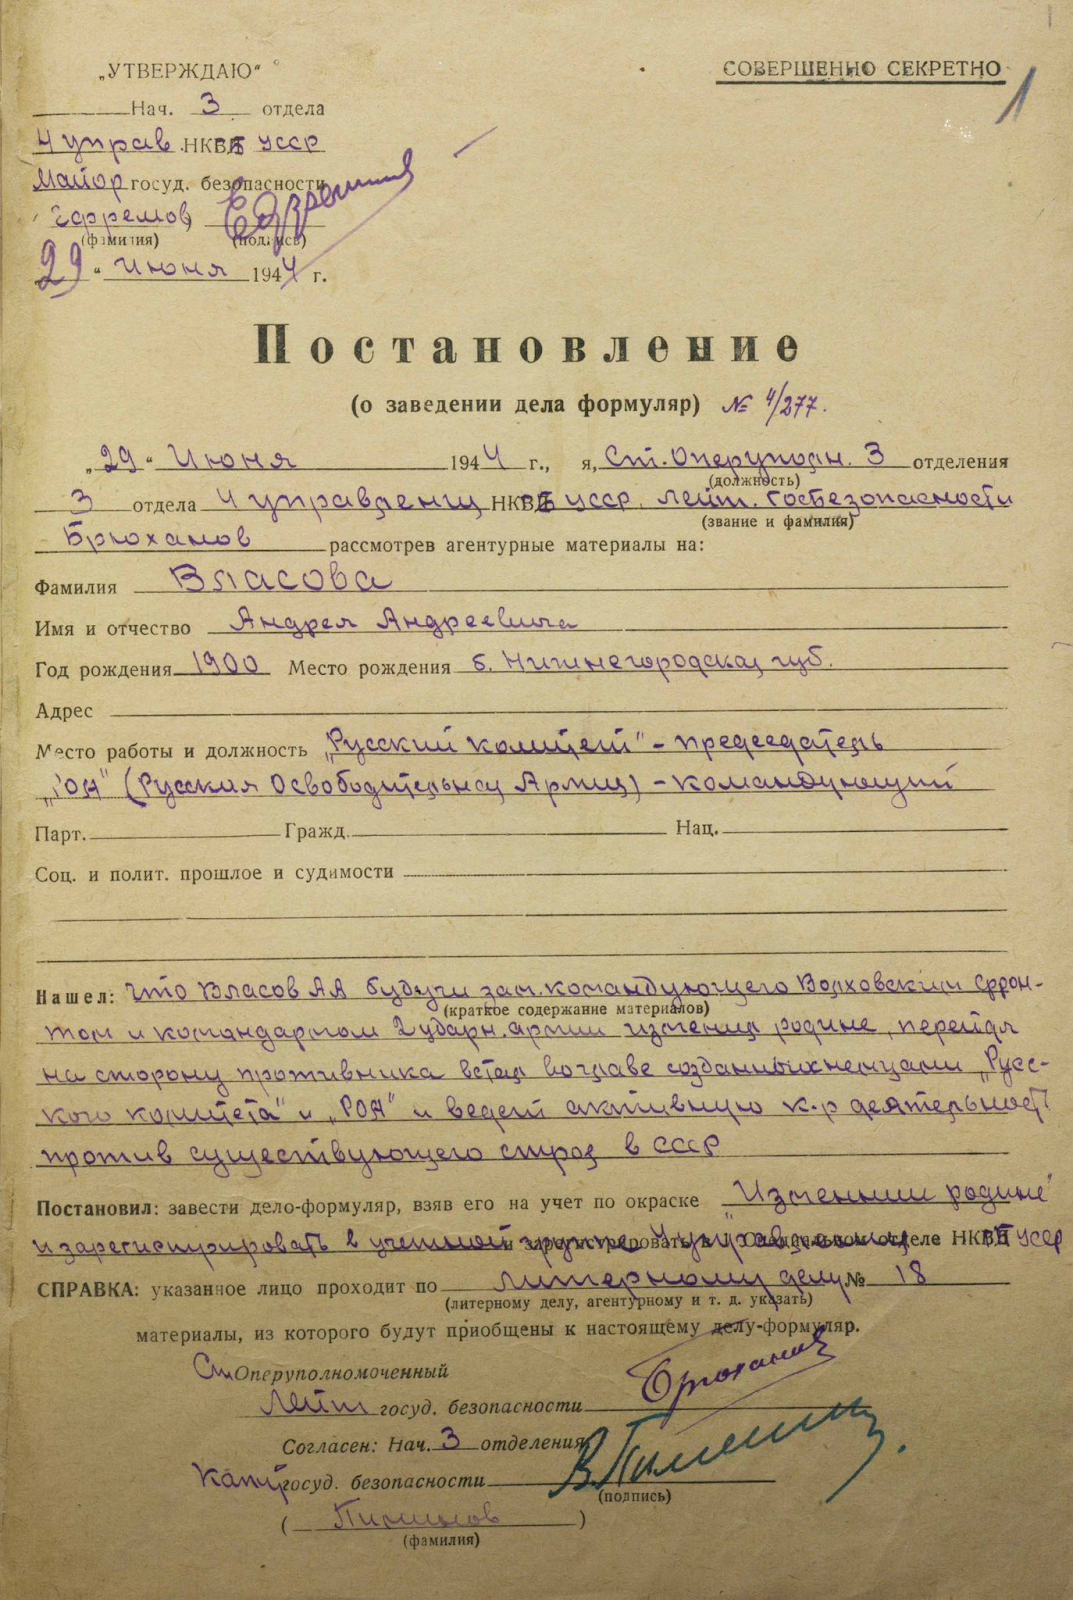 „УТВЕРЖДАЮ“
СОВЕРШЕННО СЕКРЕТНО
1
Нач. 3 отдела
4 управ. НКГБ УССР
Майор госуд. безопасности
Ефремов Ефремов
(фамилия) (подпись)
29 “ Июня 1944 г.
Постановление
(о заведении дела формуляр) № 4/277.
„29“ Июня 1944 г., я, Ст. Оперуполн. 3 отделения
(должность)
3 отдела 4 управления НКГБ УССР. лейт. госбезопасности
(звание и фамилия)
Брюханов рассмотрев агентурные материалы на:
Фамилия Власова
Имя и отчество Андрея Андреевича
Год рождения 1900 Место рождения б. Нижнегородская губ.
Адрес
Место работы и должность „Русский комитет“ – председатель
„РОА“ (Русская Освободительная Армия) – командующий
Парт. Гражд. Нац.
Соц. и полит. прошлое и судимости
Нашел: что Власов АА будучи зам. командующего Волховским фрон-
(краткое содержание материалов)
том и командармом 2 ударн. армии изменил родине, перейдя
на сторону противника встал во главе созданных немцами „Русс-
кого комитета“ и „РОА“ и ведет активную к-р деятельность
против существующего строя в СССР
Постановил: завести дело-формуляр, взяв его на учет по окраске „Изменник родине“
и зарегистрировать в учетной группе 4 управления и зарегистрировать в 1 Специальном отделе НКГБ УССР
СПРАВКА: указанное лицо проходит по литерному делу № 18
(литерному делу, агентурному и т. д. указать)
материалы, из которого будут приобщены к настоящему делу-формуляр.
Ст Оперуполномоченный
Лейт госуд. безопасности Брюханов
Согласен: Нач. 3 отделения
Капит госуд. безопасности
(подпись)
( Пименов )
(фамилия)